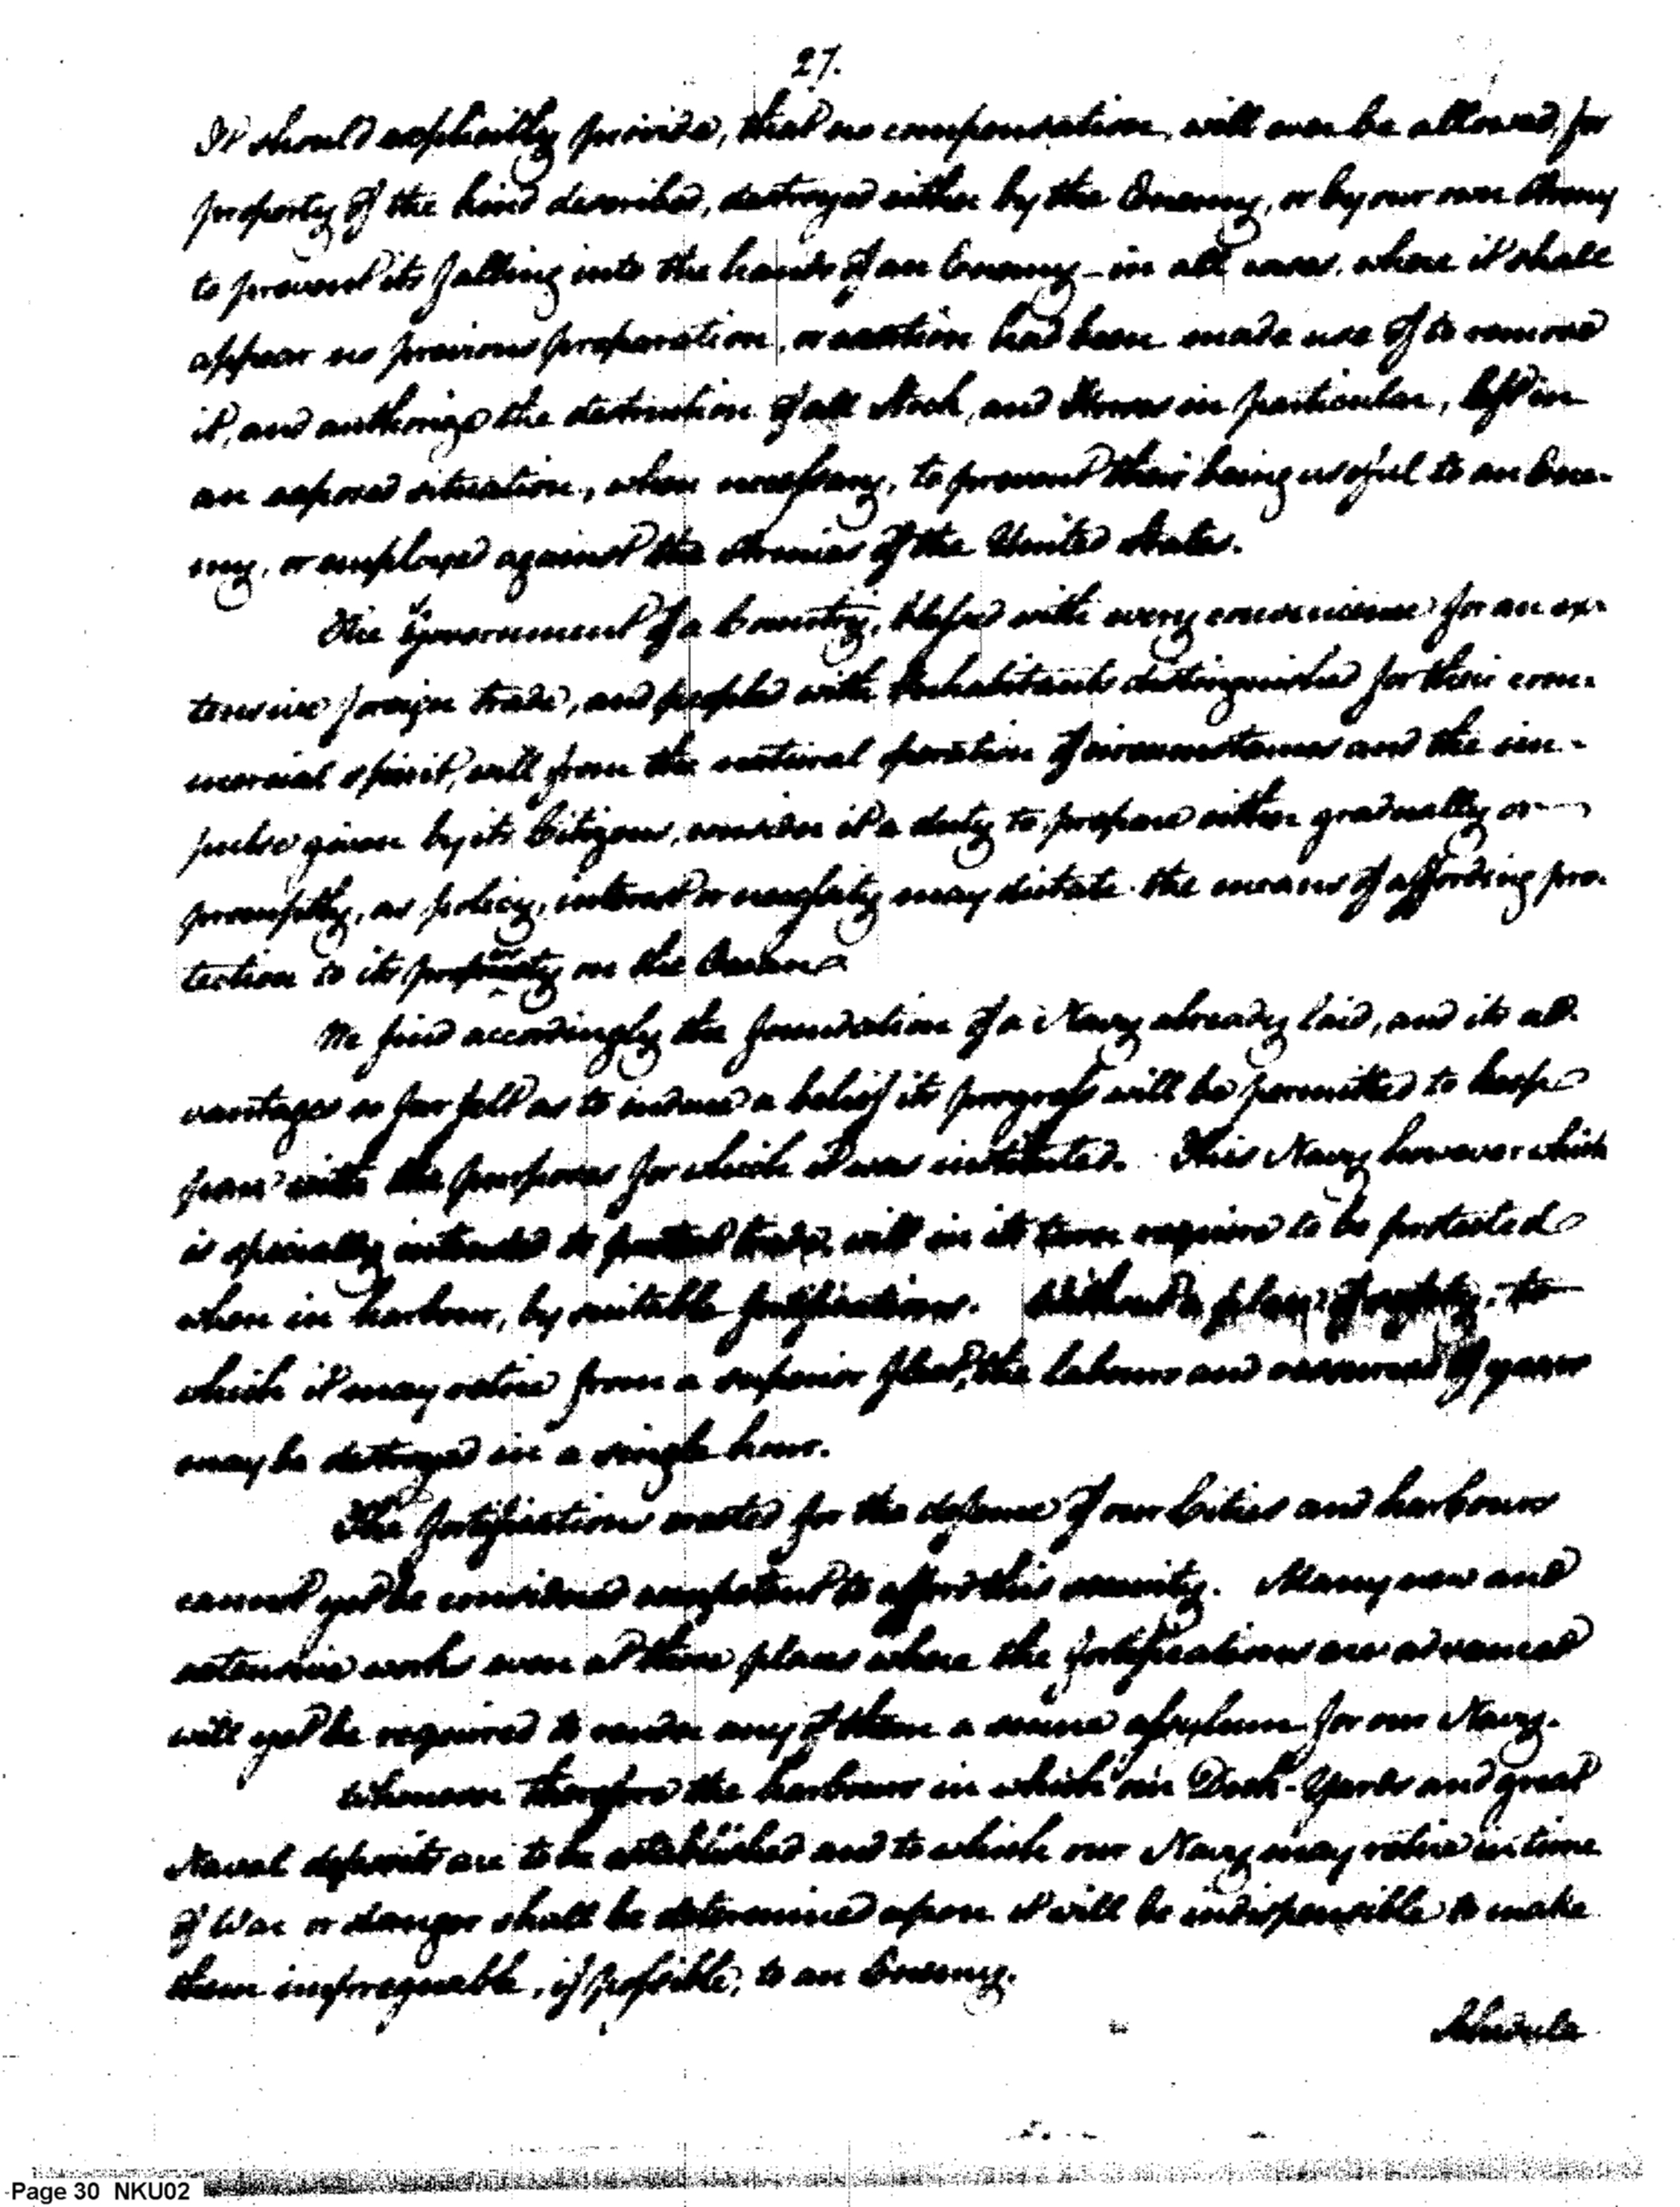 27.
It should explicitly provide, that no compensation, will ever be allowed, for
property of the kind described, destroyed either by the Enemy, or by our own Army
to prevent its falling into the hands of an Enemy - in all cases, where it shall
appear no previous preparation, or exertion had been made use of to remove
it, and authorize the destruction of all Stock, and Horses in particular, left in
an exposed situation, when necessary, to prevent their being useful to an Ene-
my, or employed against the Armies of the United States.
The Government of a Country, blessed with every convenience for an ex-
tensive foreign trade, and peopled with Inhabitants distinguished for their com-
mercial spirit, will from the natural operation of circumstances and the im-
pulse given by its Citizens, consider it a duty to prepare either gradually or
promptly, as policy, interest or necessity may dictate the means of affording pro-
tection to its property on the Ocean.
We find accordingly the foundation of a Navy already laid, and its ad-
vantages so far felt as to induce a belief its progress will be permitted to keep
pace with the purposes for which it was instituted. This Navy however which
is specially intended to protect trade, will in its turn require to be protected
when in harbour, by suitable fortifications. Without a place of safety, to
which it may retire from a superior fleet, the labours and resources of years
may be destroyed in a single hour.
The fortifications erected for the defence of our Cities and harbours
cannot yet be considered competent to afford this security. Many new and
extensive works even at those places where the fortifications are advanced
will yet be required to render any of them a secure assylum for our Navy.
Whenever therefore the harbours in which our Dock-Yards and great
Naval deposits are to be established and to which our Navy may retire in time
of War or danger shall be determined upon it will be indispensible to make
them impregnable, if possible, to an Enemy.
Page 30 NKU02